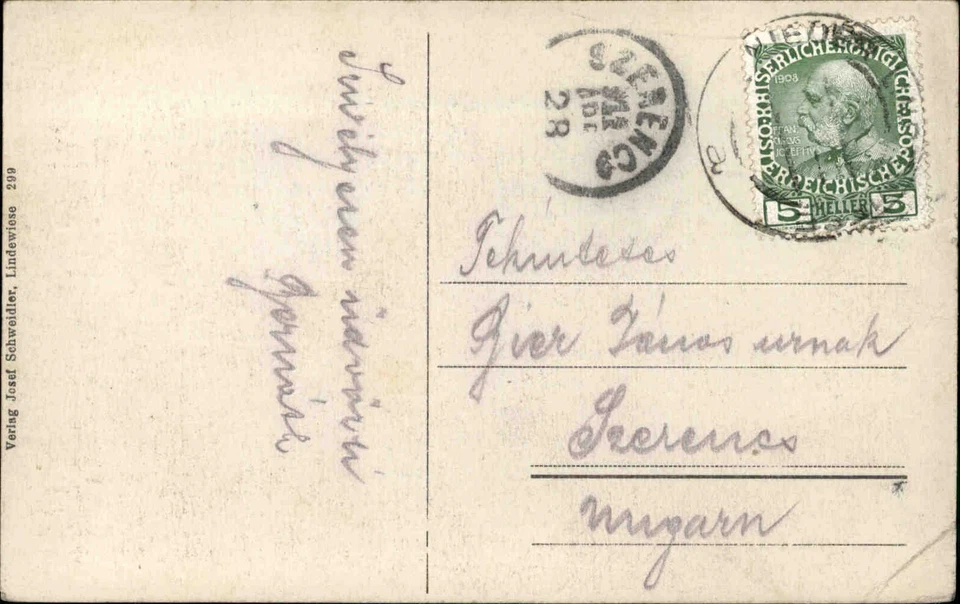 Verlag Josef Schweidler, Lindewiese 299
Szivélyesen üdvözli
SZERENCS
28
1908
KAISERLICHE KÖNIGLICHE
ÖSTERREICHISCHE POST
5 HELLER 5
Tekintetes
Gier János urnak
Szerencs
Ungarn